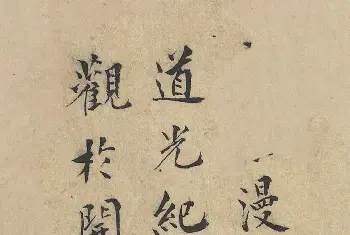 漫
道光紀
觀於開